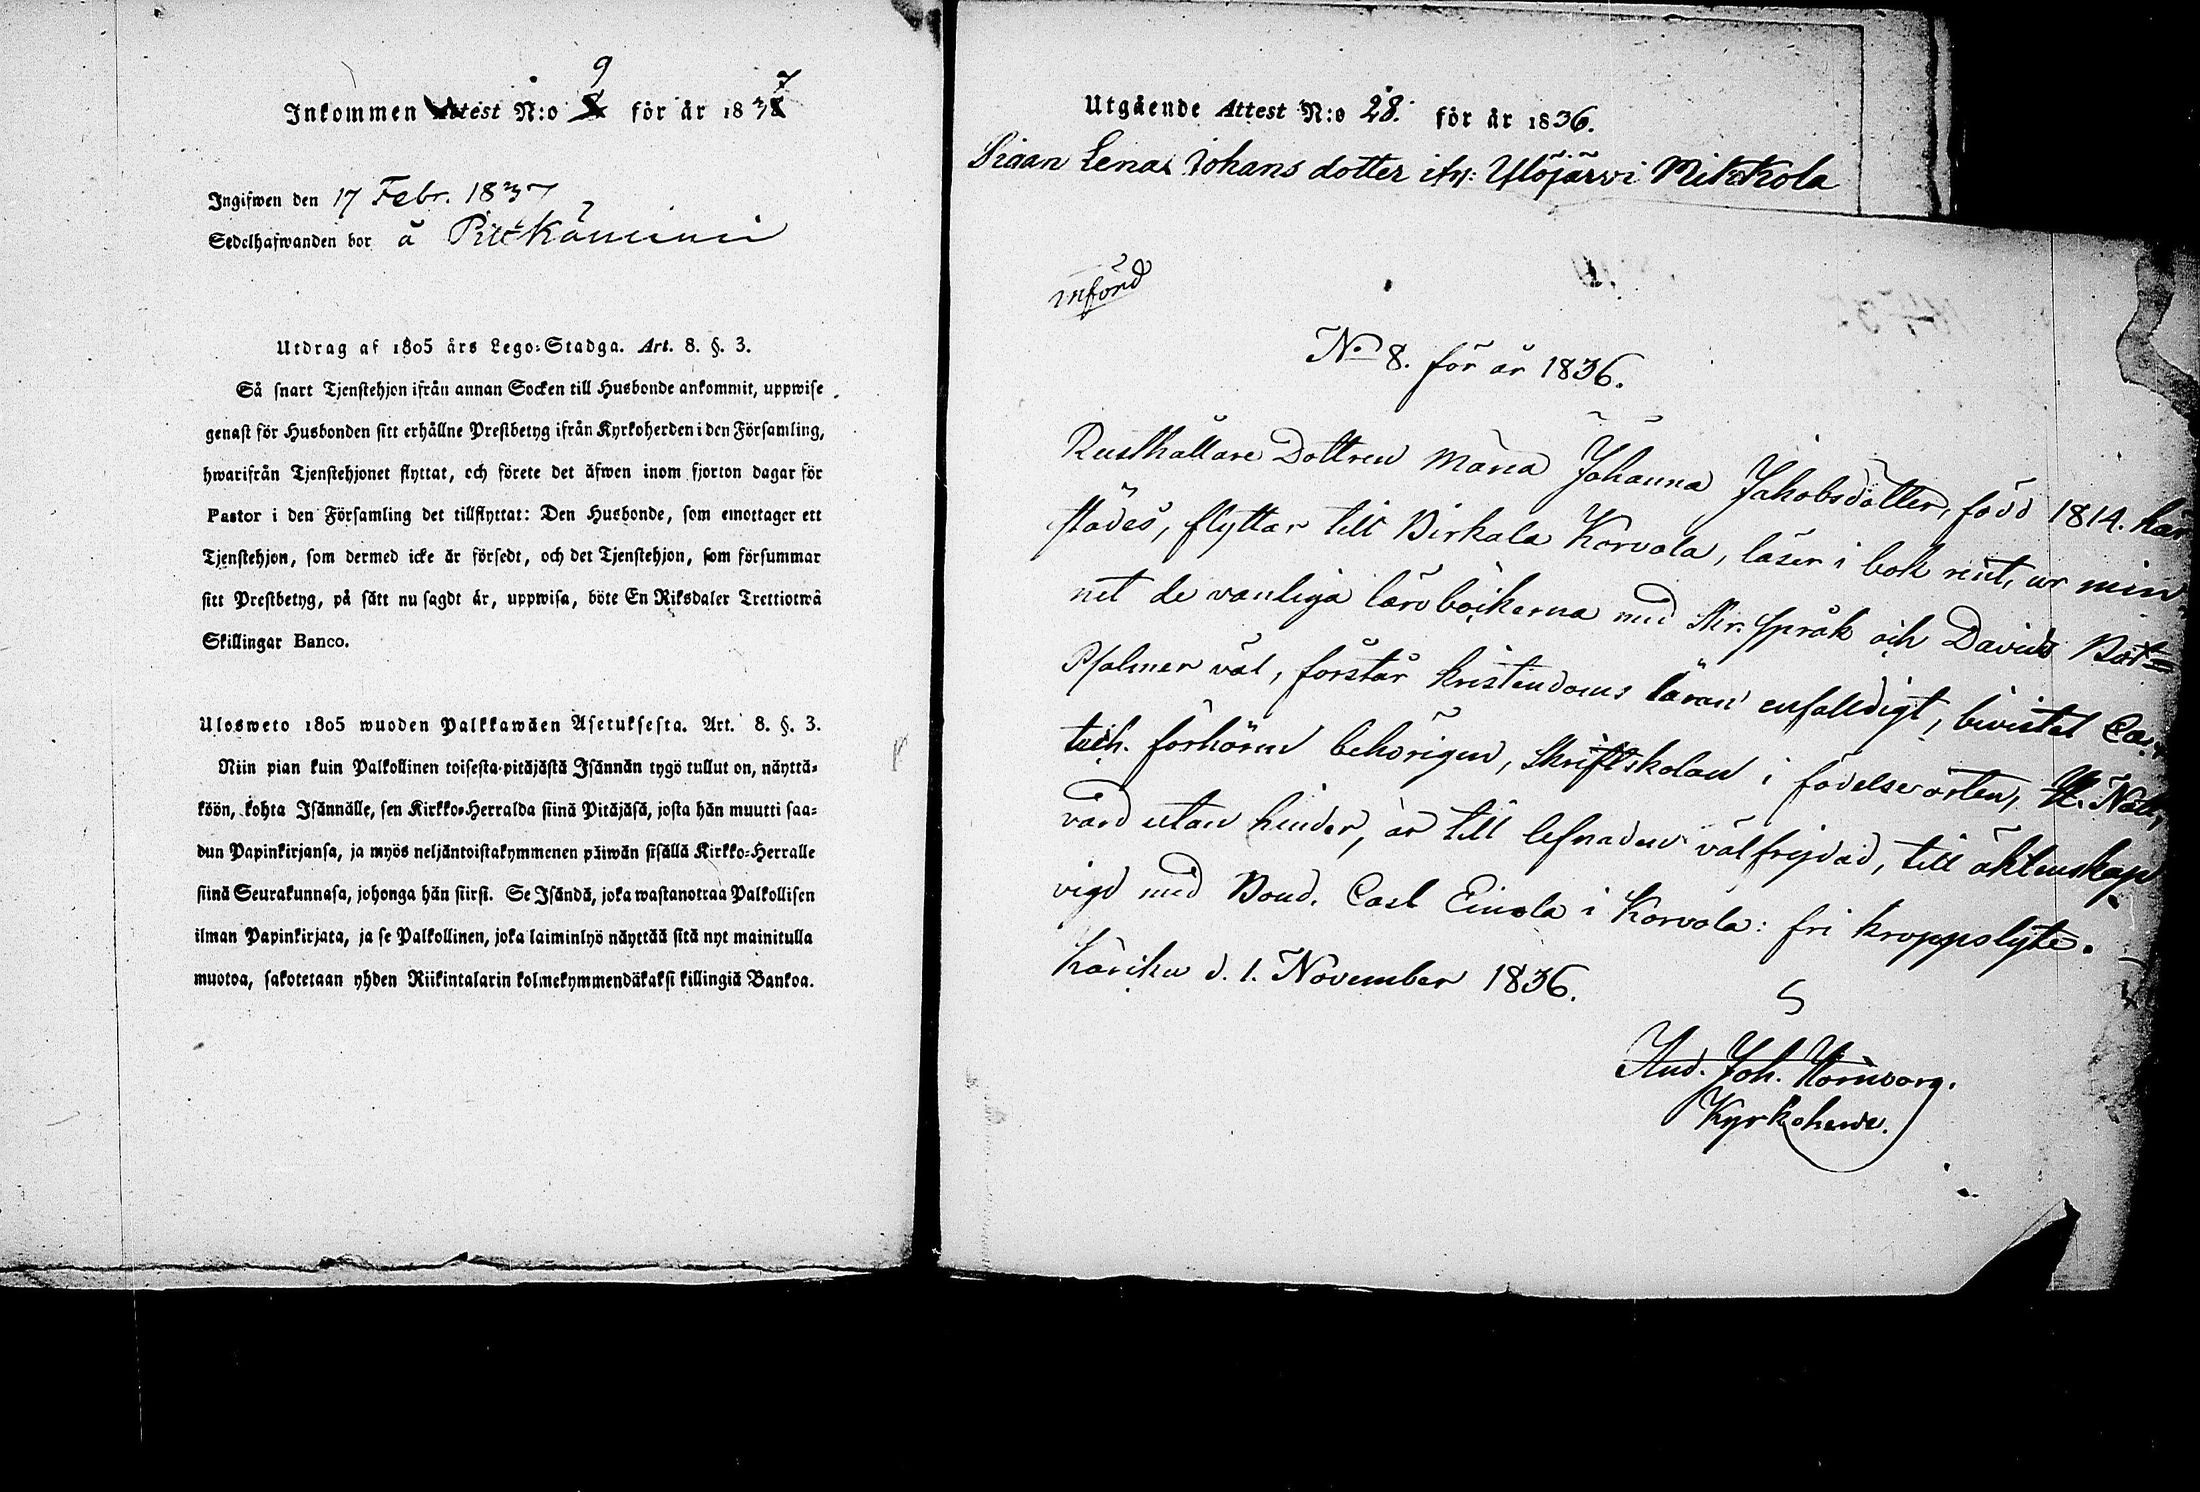 Inkommen Attest N:o 9 för år 1837
Ingifwen den 17 Febr. 1837
Sedelhafwanden bor å Pitkäniemi
Utdrag af 1805 års Lego-Stadga. Art. 8. §. 3.
Så snart Tjenstehjon ifrån annan Socken till Husbonde ankommit, uppwise
genast för Husbonden sitt erhållne Prestbetyg ifrån Kyrkoherden i den Församling,
hwarifrån Tjenstehjonet flyttat, och förete det äfwen inom fjorton dagar för
Pastor i den Församling det tillflyttat: Den Husbonde, som emottager ett
Tjenstehjon, som dermed icke är försedt, och det Tjenstehjon, som försummar
sitt Prestbetyg, på sätt nu sagdt är, uppwisa, böte En Riksdaler Trettiotwå
Skillingar Banco.
Ulosweto 1805 wuoden Palkkawäen Asetuksesta. Art. 8. §. 3.
Niin pian kuin Palkollinen toisesta pitäjästä Isännän tygö tullut on, näyttä-
köön, kohta Isännälle, sen Kirkko-Herralda siinä Pitäjäsä, josta hän muutti saa-
dun Papinkirjansa, ja myös neljäntoistakymmenen päiwän sisällä Kirkko-Herralle
siinä Seurakunnasa, johonga hän siirsi. Se Isändä, joka wastanottaa Palkollisen
ilman Papinkirjata, ja se Palkollinen, joka laiminlyö näyttää sitä nyt mainitulla
muotoa, sakotetaan yhden Riikintalarin kolmekymmendäkaksi killingiä Bankoa.
Utgående Attest N:o 28. för år 1836.
Lena Johans dotter Ylöjärvi Mikkola
införd
No 8. för år 1836.
Rusthållare Dottren Maria Johanna Jakobsdotter, född 1814. här
städes, flyttar till Birkala Korvola, läser i bok rent, ur min
net de vanliga läroböckerna med Skr. språk och Davids Bot=
Psalmer väl, förstår kristendoms läran enfaldigt, bivistat Ca-
tech. förhören behörigen, Skriftskolan i födelseorten, H. Natt-
vard utan hinder, är till lefnaden välfrejdad, till äktenskap
vigd med Bond. Carl Einola i Korvola: fri kroppslyte.
d. 1. November 1836.
And. Joh. Hornborg.
Kyrkoherde.